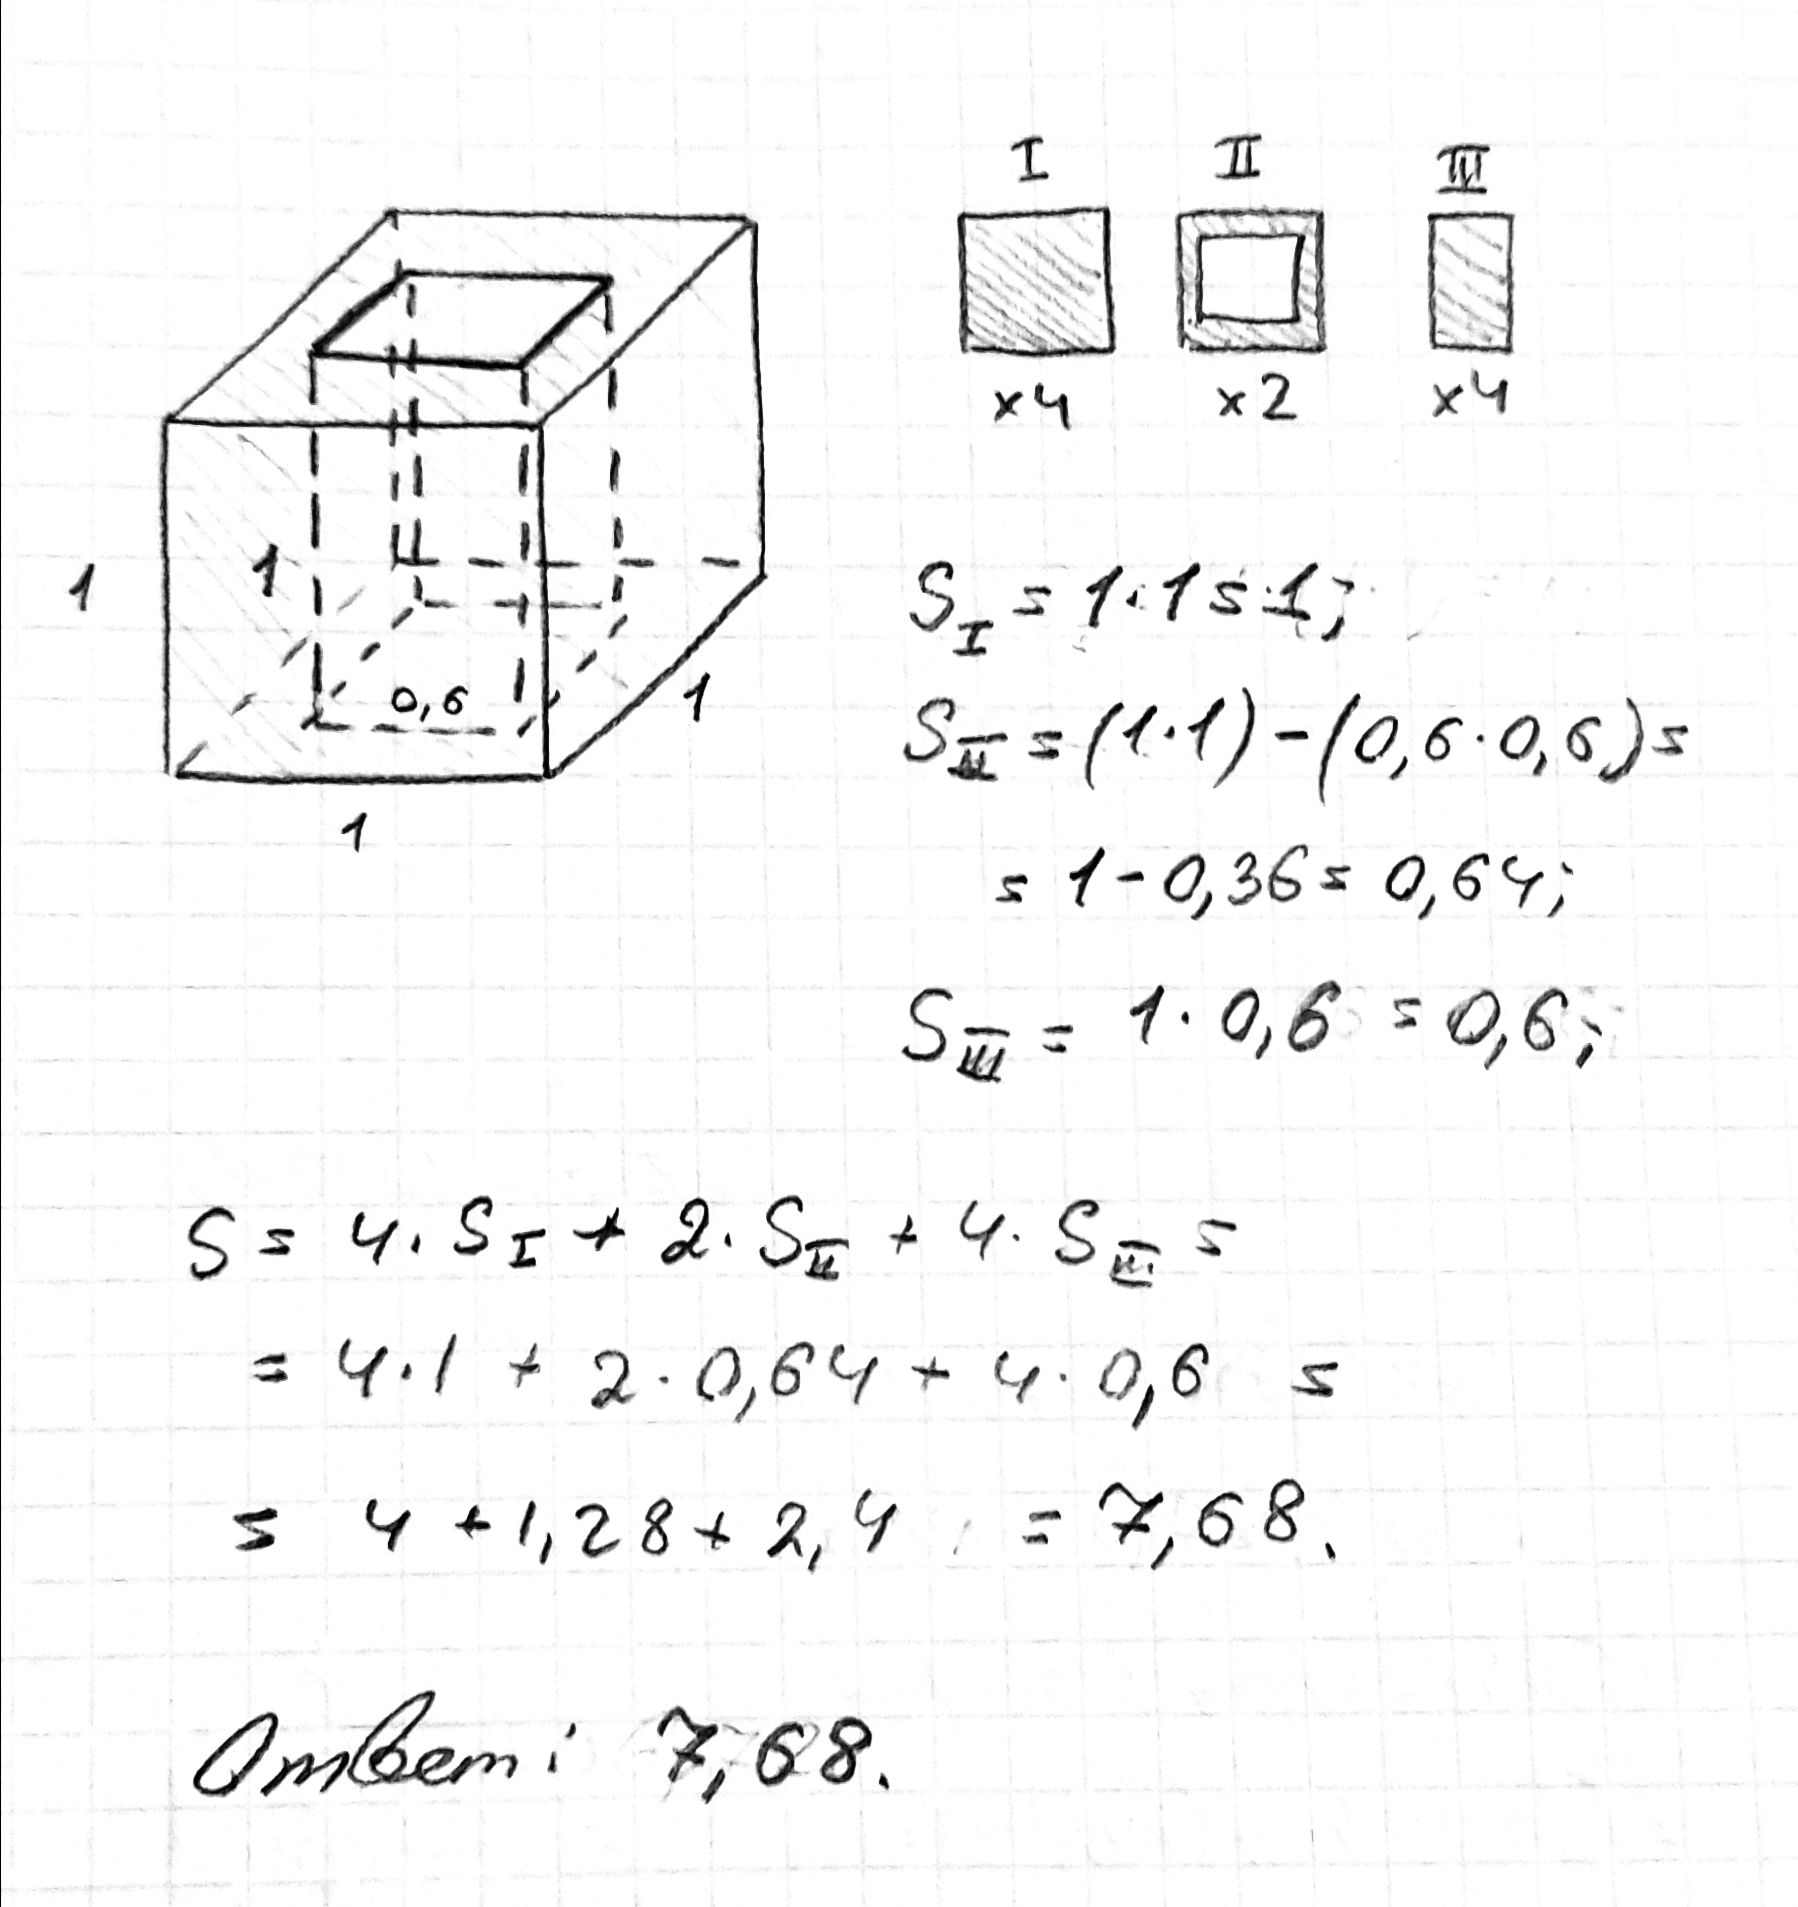 I II III
x4 x2 x4
1
1
0,6
1
1
S_I = 1·1 = 1;
S_II = (1·1) - (0,6·0,6) =
= 1 - 0,36 = 0,64;
S_III = 1·0,6 = 0,6;
S = 4·S_I + 2·S_II + 4·S_III =
= 4·1 + 2·0,64 + 4·0,6 =
= 4 + 1,28 + 2,4 = 7,68.
Ответ: 7,68.